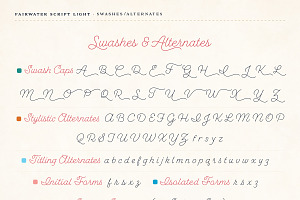 FAIRWATER SCRIPT LIGHT - SWASHES/ALTERNATES
Swashes & Alternates
Swash Caps A B C D E F G H I J K L
M N O P Q R S T U V W X Y Z
Stylistic Alternates A B C D E F G H I J K L M N O P
Q R S T U V W X Y Z f r s y z
Titling Alternates a b c d e f g h i j k l m n o p q r s t u v w x y z
Initial Forms f k s x z Isolated Forms k s x z